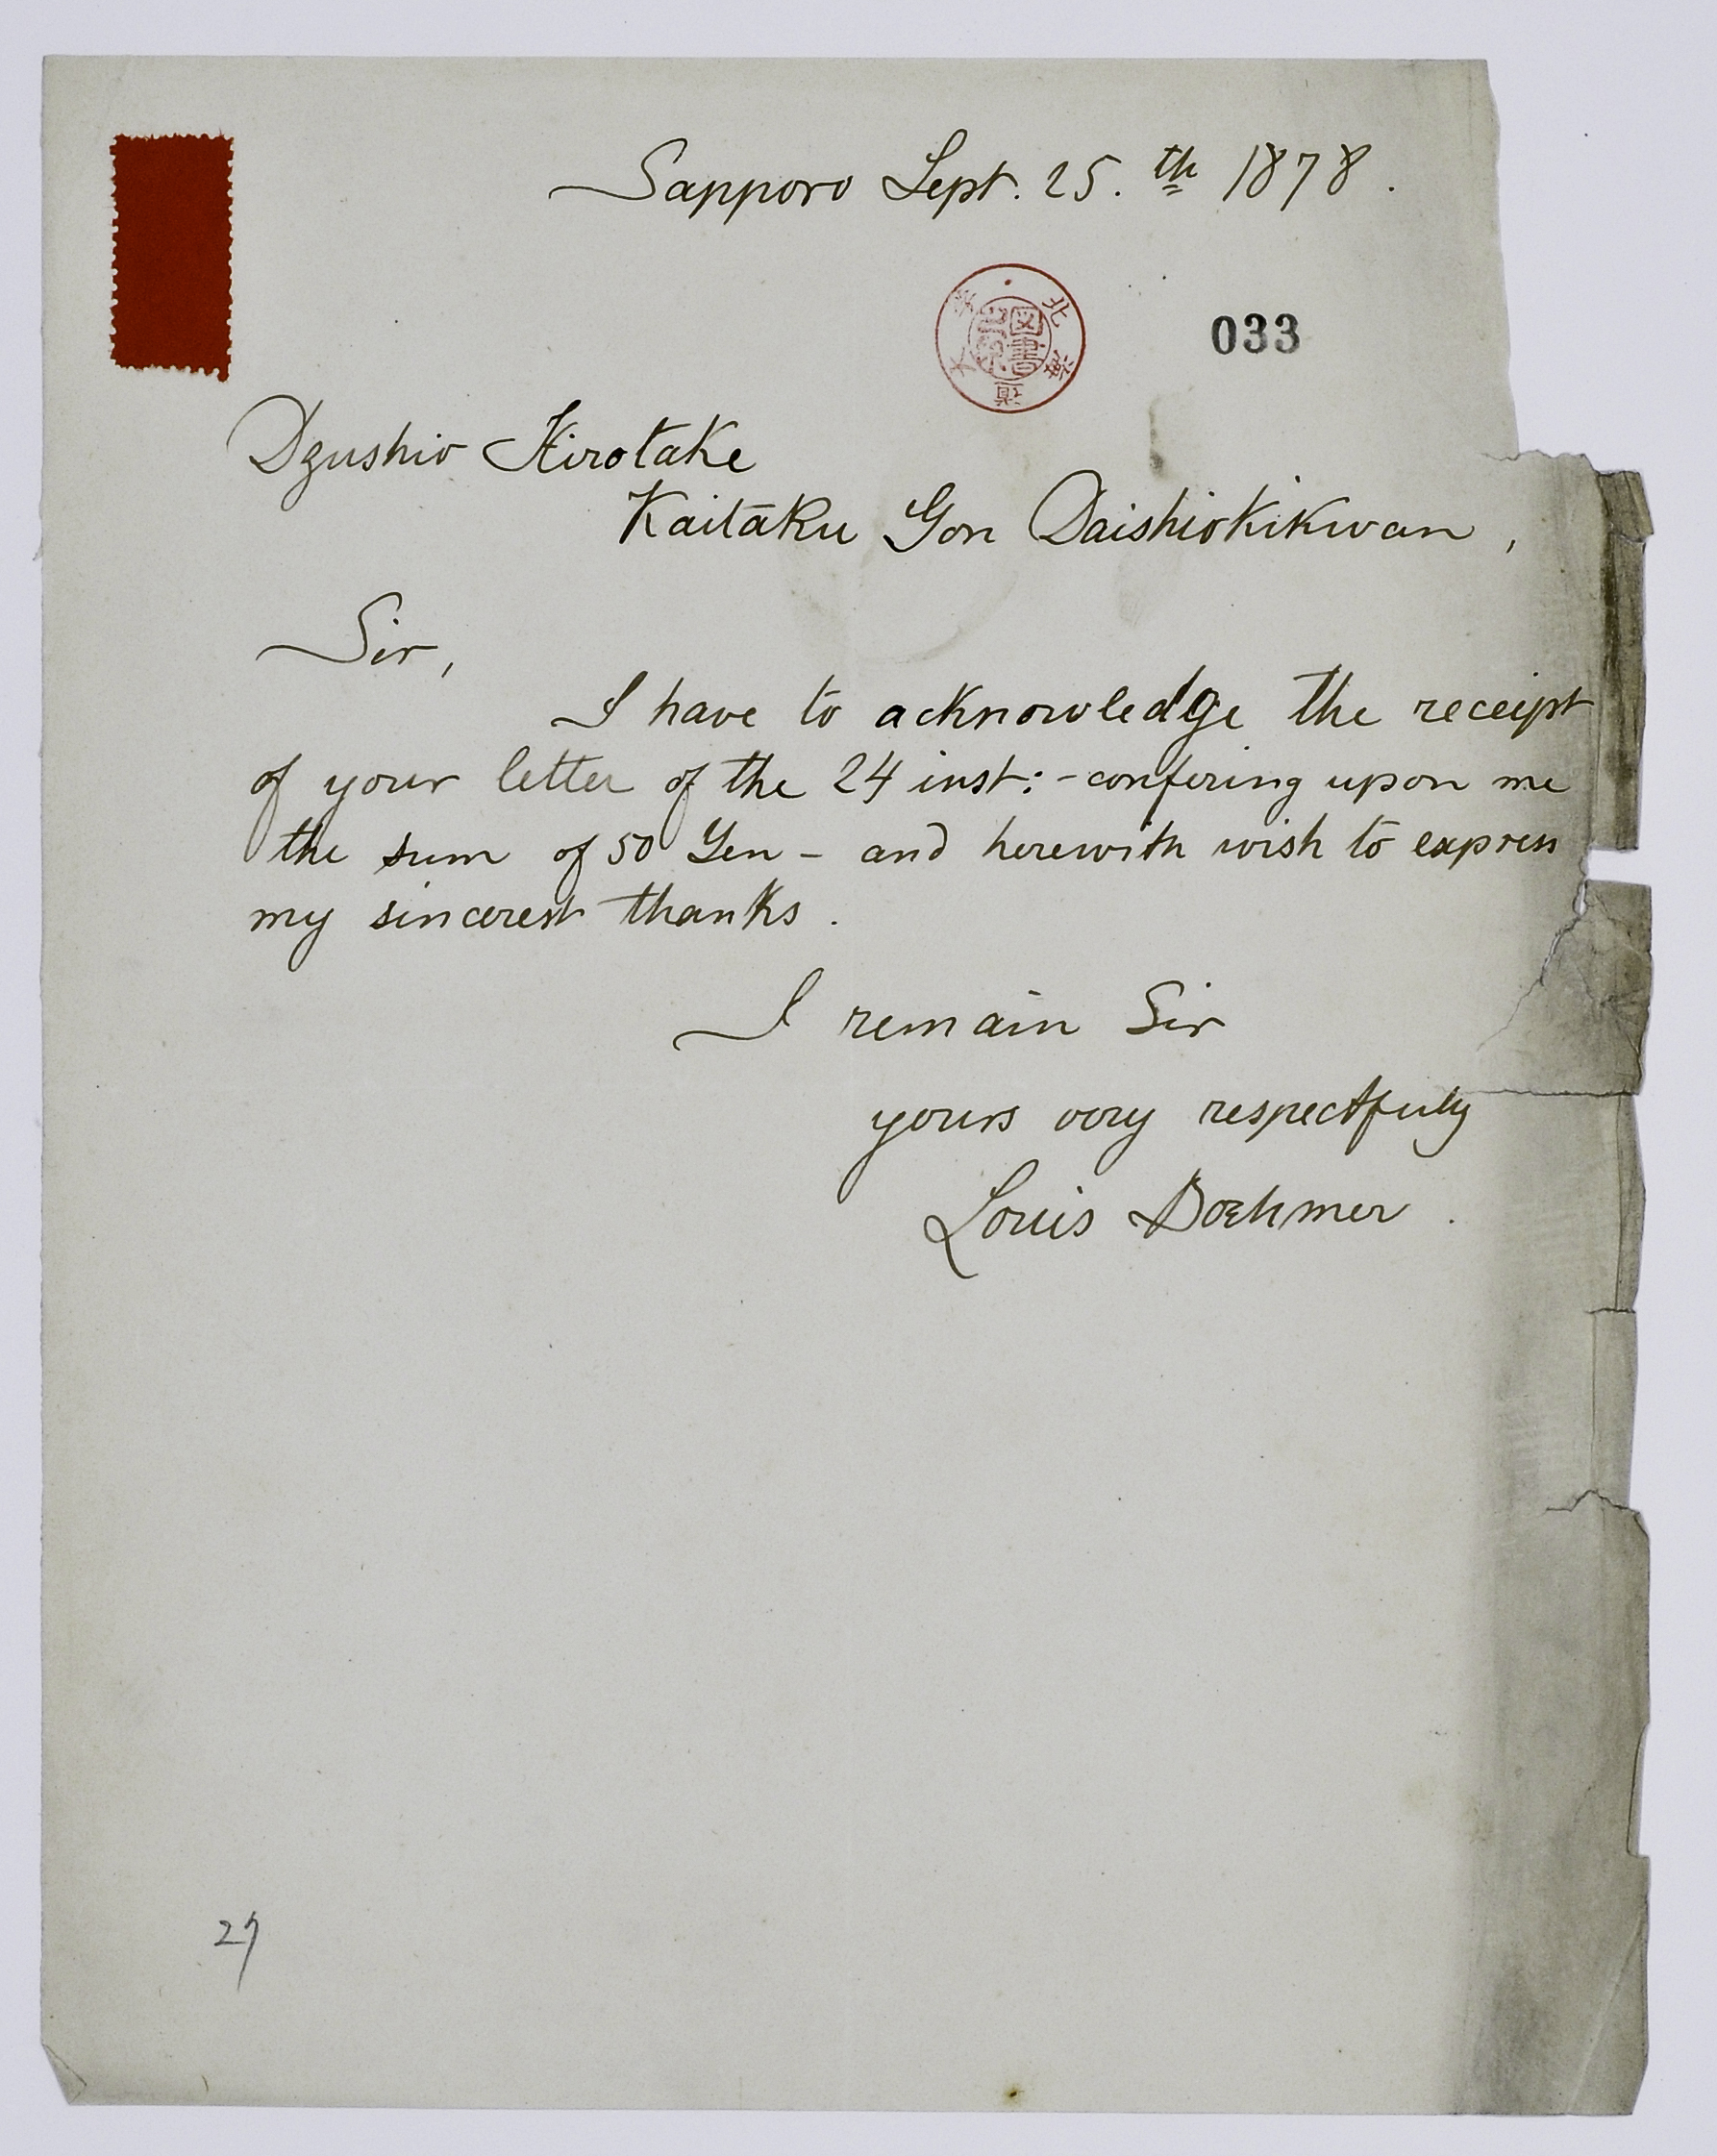 Sapporo Sept. 25.th 1878.
北海道大学
図書
033
Dzushio Hirotake
Kaitaku Gon Daishiokikwan,
Sir,
I have to acknowledge the receipt
of your letter of the 24 inst:- confering upon me
the sum of 50 Yen - and herewith wish to express
my sincerest thanks.
I remain Sir
yours very respectfuly
Louis Boehmer.
27